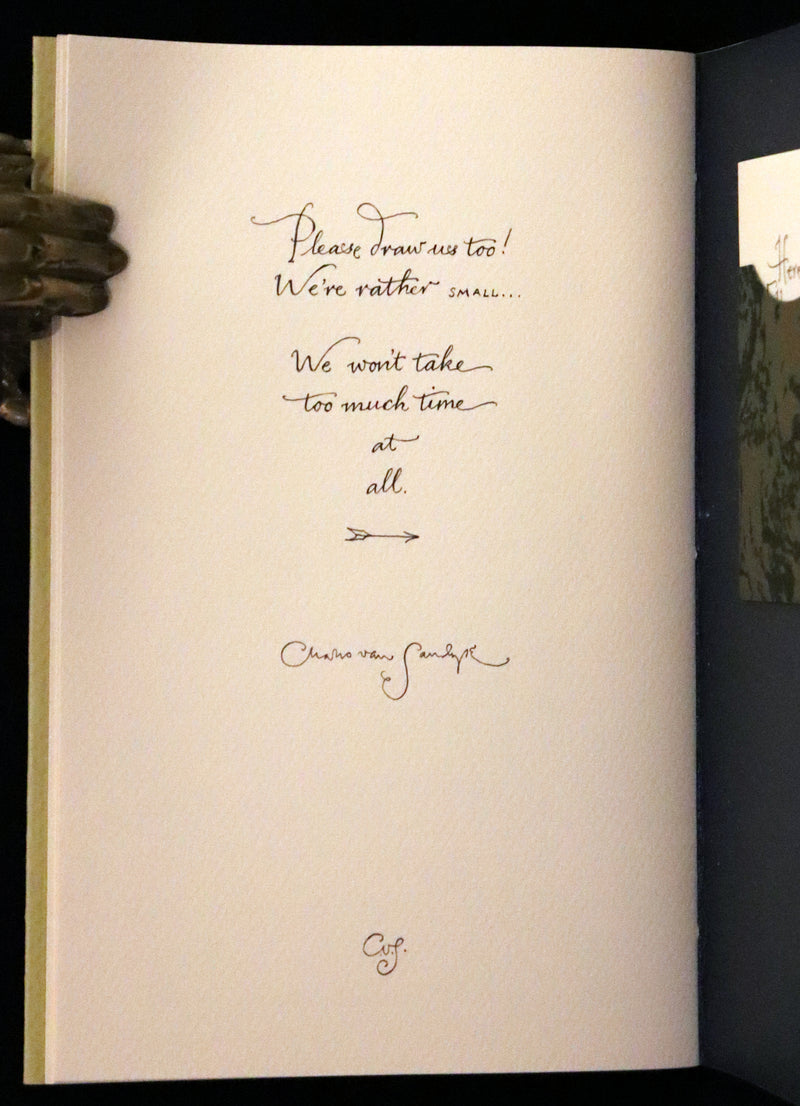 Please draw us too!
We're rather SMALL...
We won't take
too much time
at
all.
Charles van Sandwyk
C.v.S.